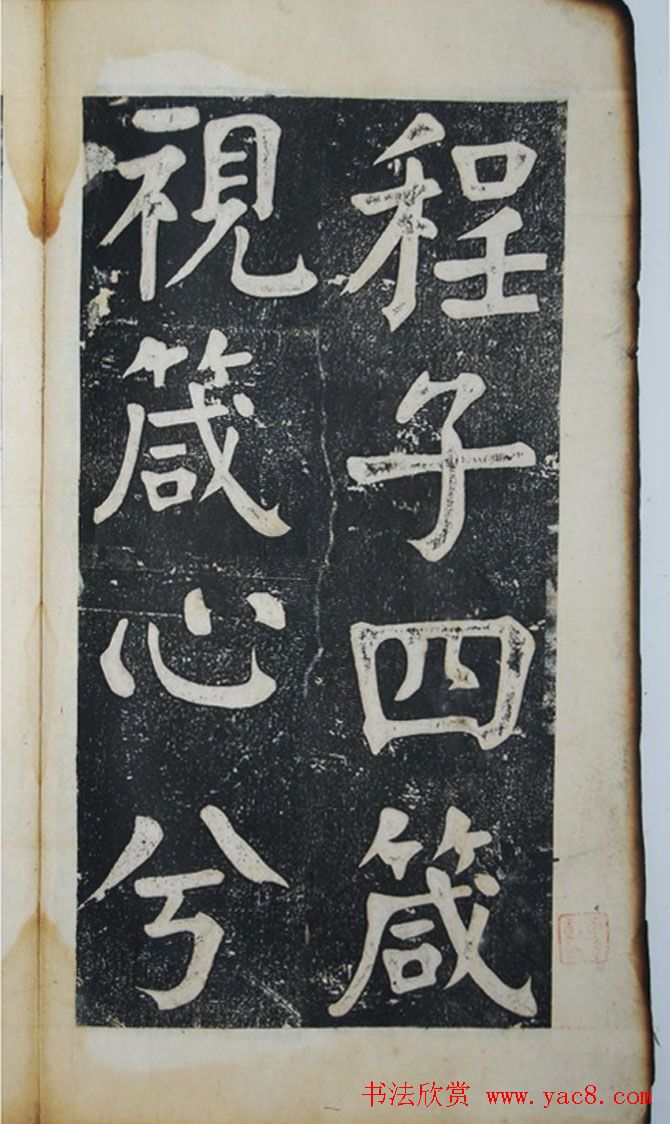 程子四箴
視箴心兮
书法欣赏 www.yac8.com